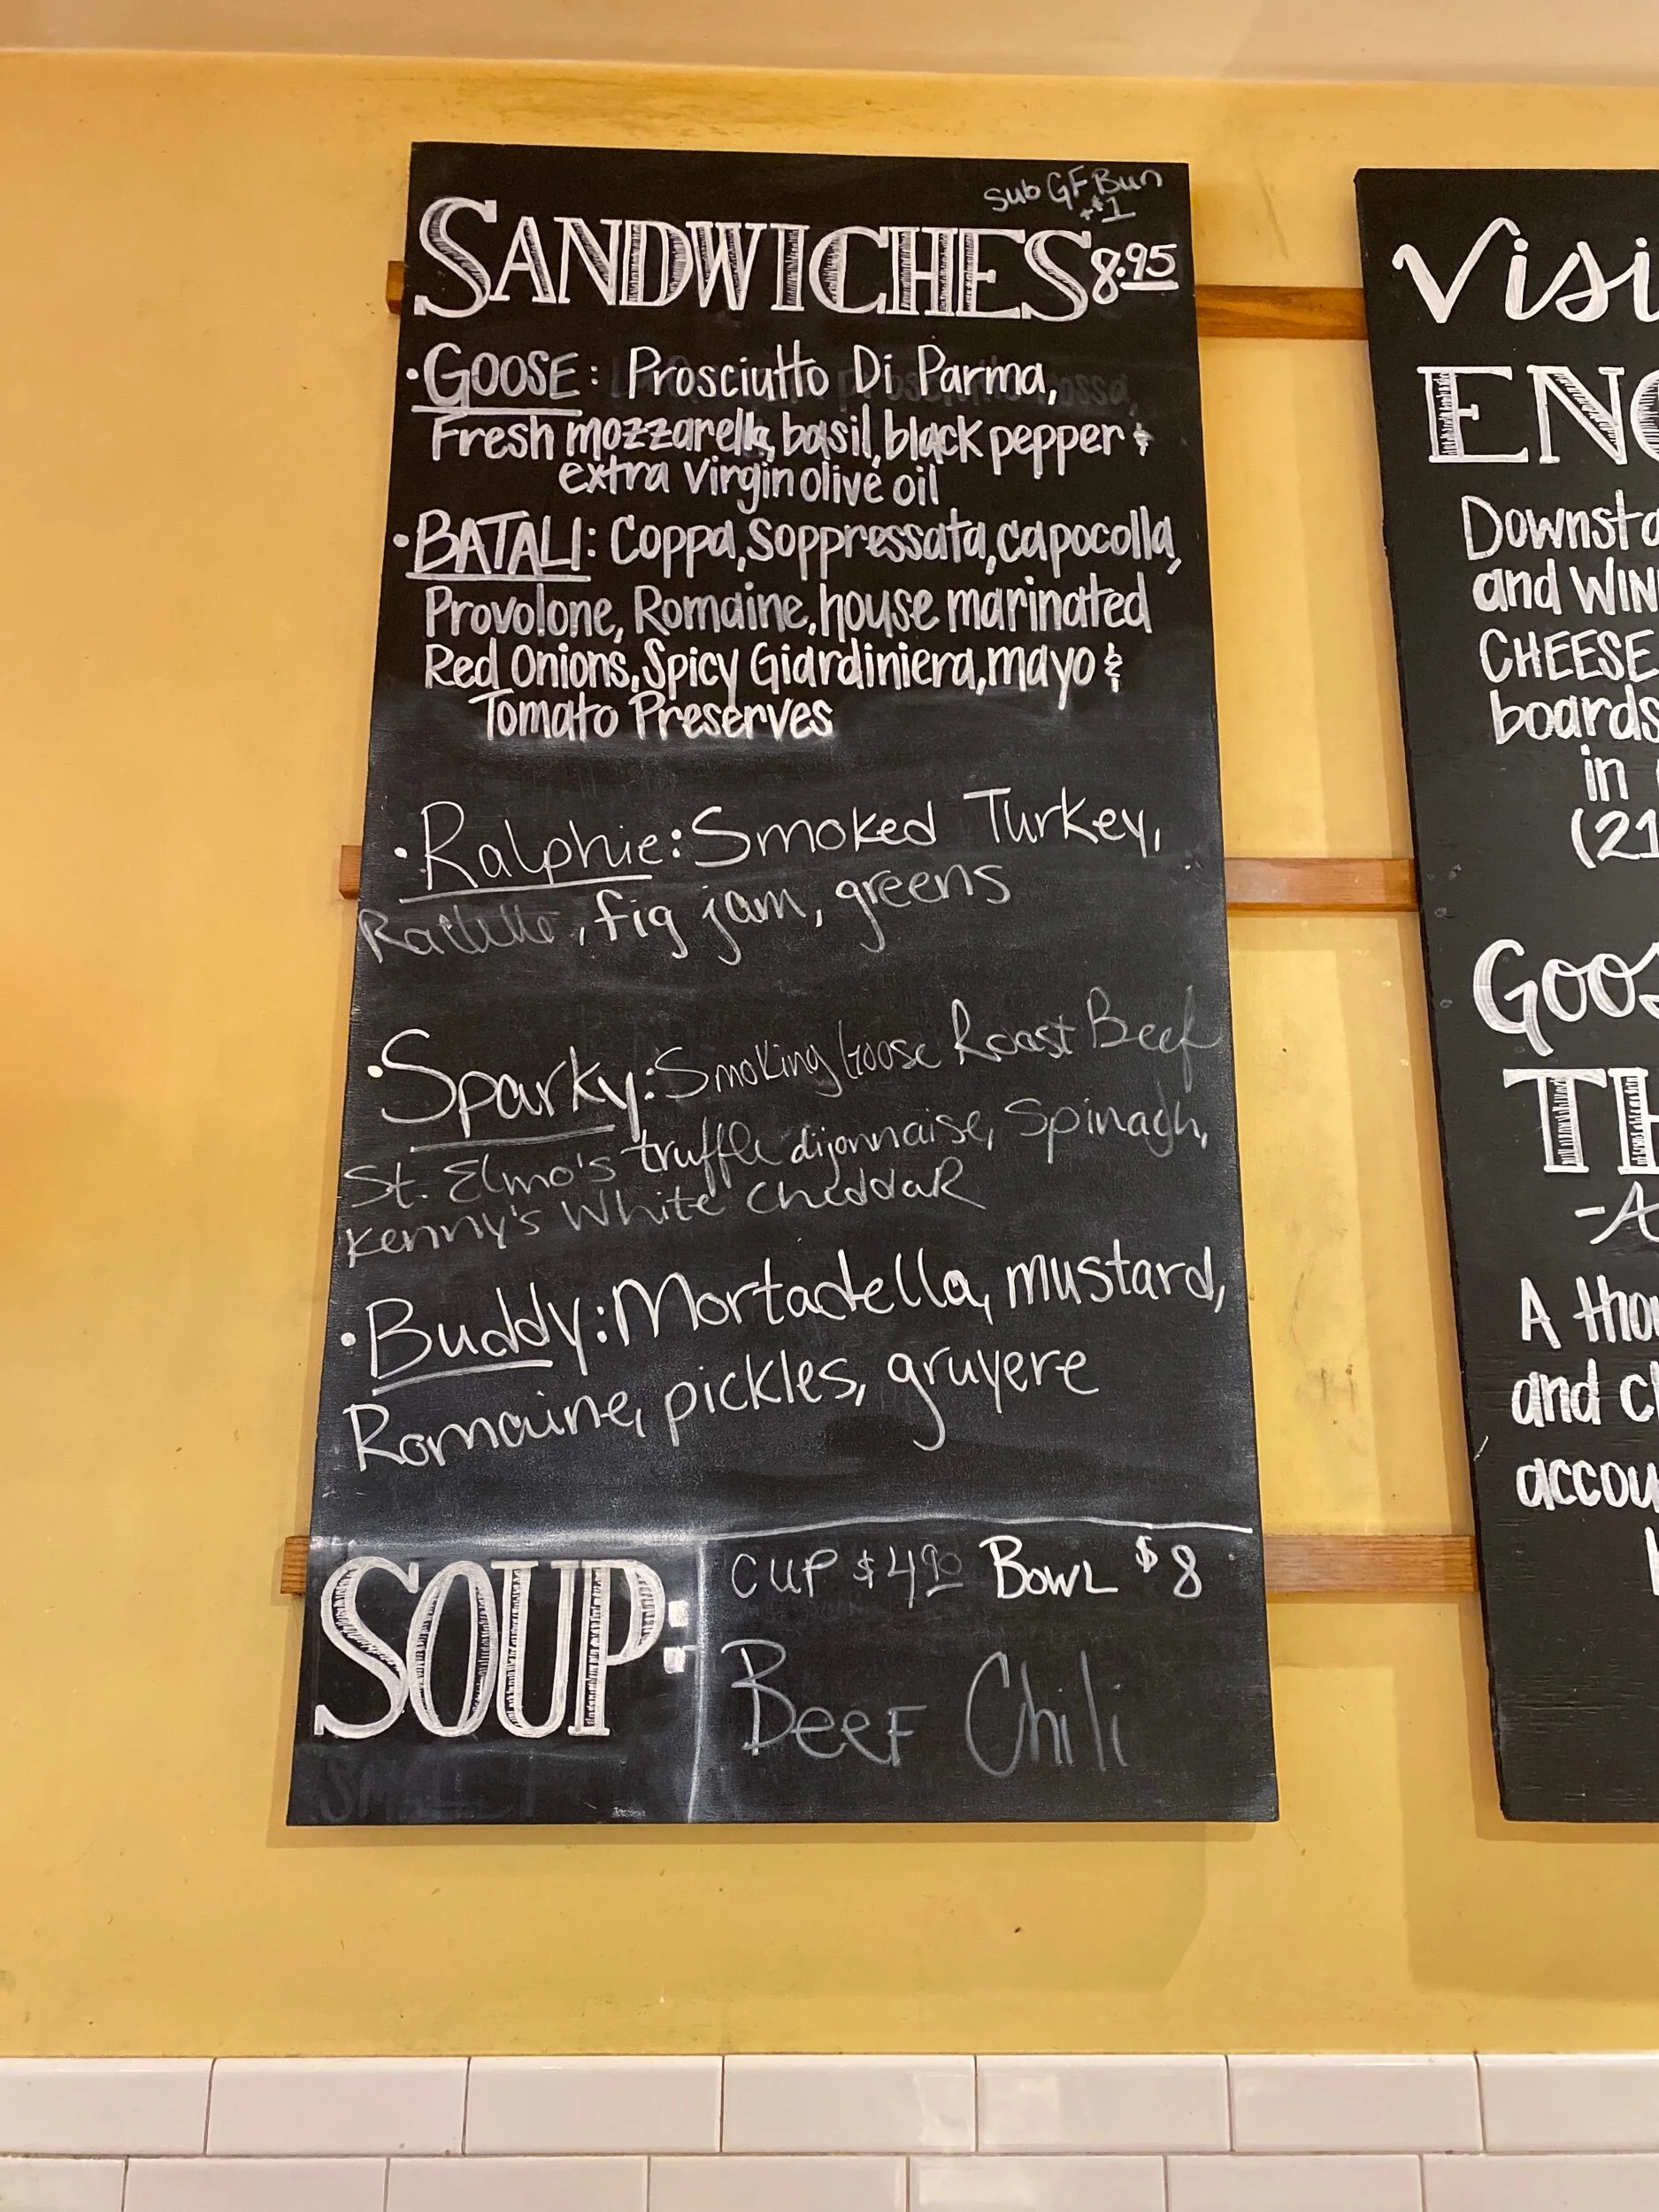 Sub GF Bun
+$1
SANDWICHES 8.95
• GOOSE: Prosciutto Di Parma,
Fresh mozzarella, basil, black pepper &
extra virgin olive oil
• BATALI: Coppa, Soppressata, capocolla,
Provolone, Romaine, house marinated
Red Onions, Spicy Giardiniera, mayo &
Tomato Preserves
• Ralphie: Smoked Turkey,
fig jam, greens
• Sparky: Smoking Goose Roast Beef
St. Elmo's truffle dijonnaise, Spinach,
Kenny's White CheddaR
• Buddy: Mortadella, mustard,
Romaine, pickles, gruyere
SOUP:
CUP $4.90 BOWL $8
BeeF Chili
Visi
ENO
Downsta
and WIN
CHEESE
boards
in
(21
Goos
TH
-A
A thou
and ch
accou